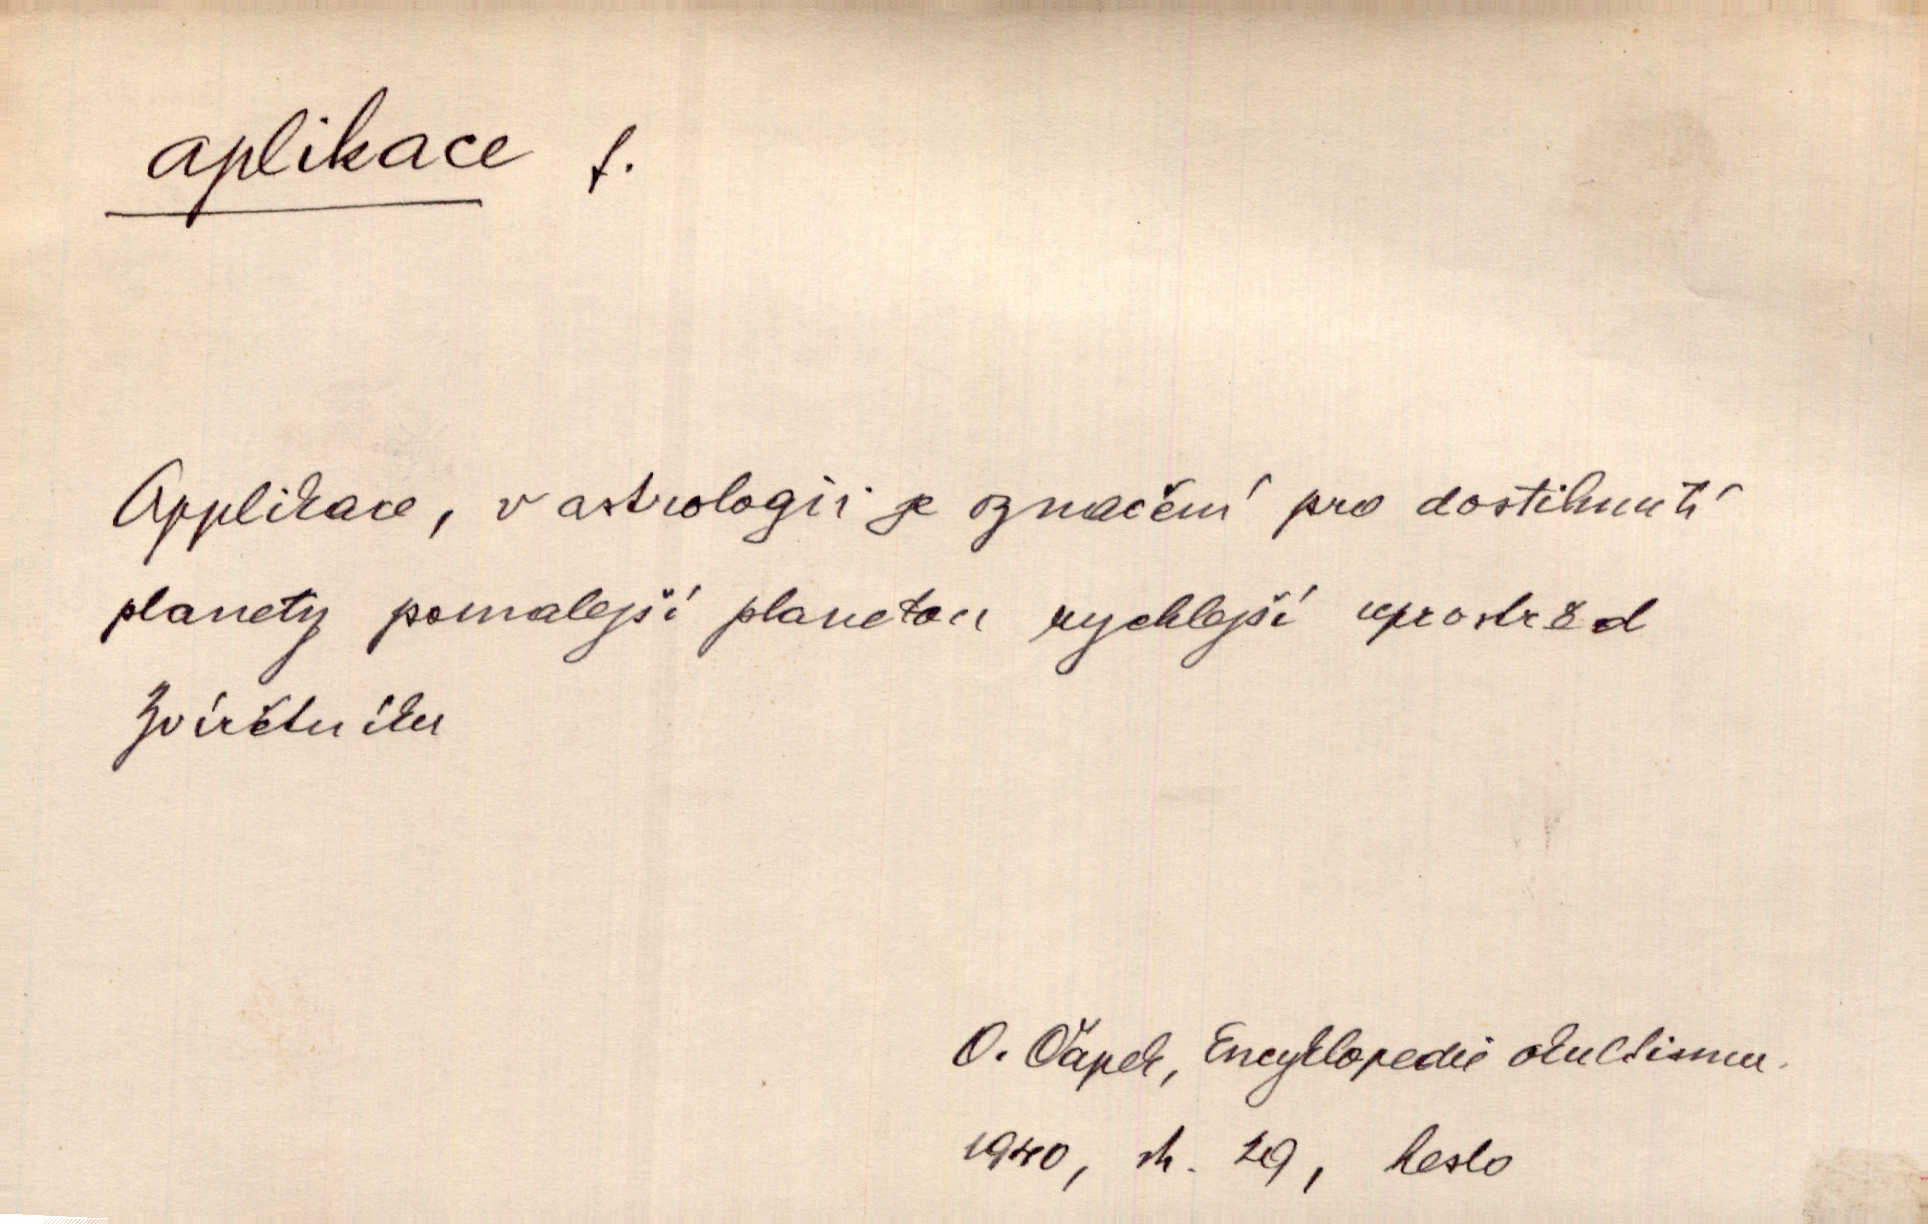 aplikace f.
Applikace, v astrologii je označení pro dostihnutí
planety pomalejší planetou rychlejší uprostřed
Zvířetníku
O. Čapek, Encyklopedie okultismu.
1940, str. 29, heslo